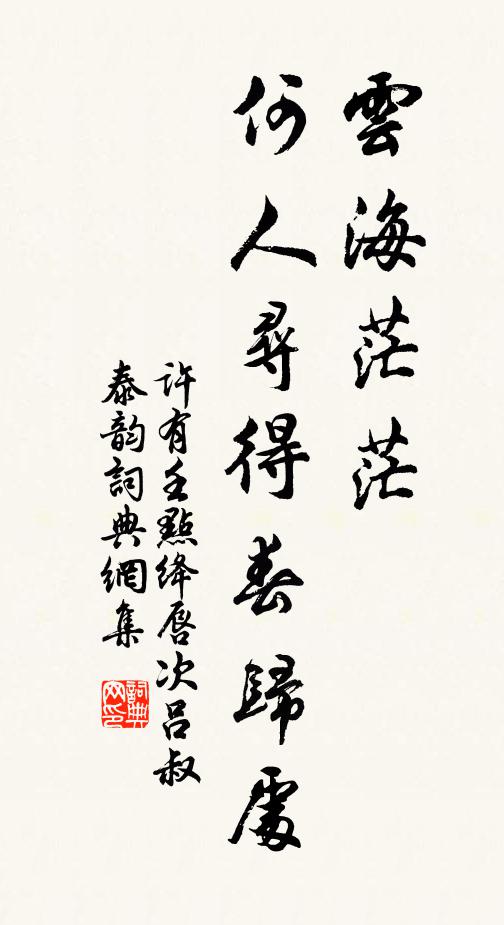 雲海茫茫
何人尋得春歸處
許有壬點絳唇次呂叔
泰韵詞典網集
詞典网印